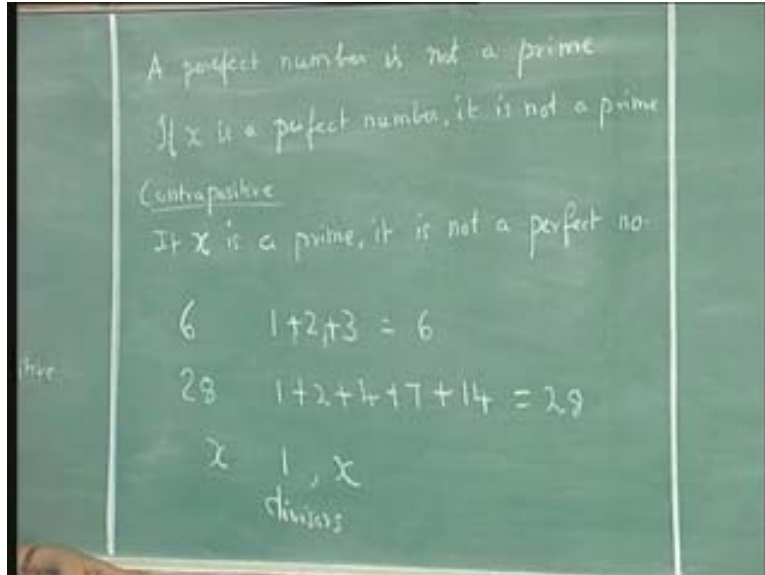 A perfect number is not a prime
If x is a perfect number, it is not a prime
Contrapositive
If x is a prime, it is not a perfect no.
6 1+2+3 = 6
28 1+2+4+7+14 = 28
x 1, x
divisors
itive.